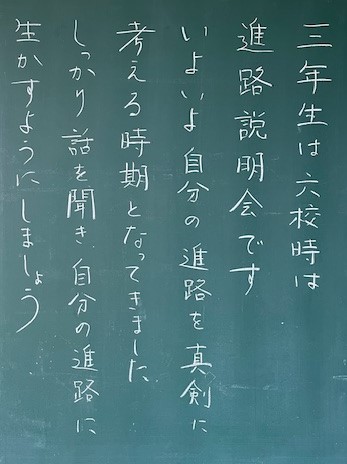 三年生は六校時は
進路説明会です
いよいよ自分の進路を真剣に
考える時期となってきました
しっかり話を聞き、自分の進路に
生かすようにしましょう